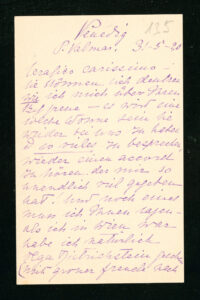 Venedig 135
S. Valmar. 31-5-20
Serafico carissimo -
Sie können sich denken
wie ich mich über Ihren
Brief freue - es wird eine
solche Wonne sein Sie
wieder bei uns zu haben
u so vieles zu besprechen
wieder einen accord
zu hören der mir so
unendlich viel gegeben
hat. Und noch eines
muss ich Ihnen sagen
als ich in Wien war
habe ich natürlich
Dietrichstein gesehen
(mit grosser freude nach